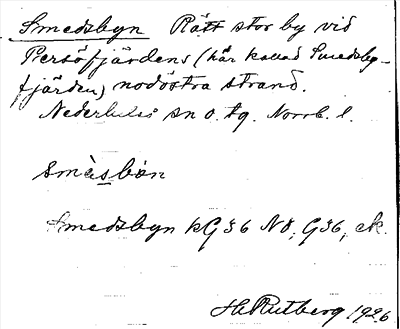 Smedsbyn Rätt stor by vid
Persöfjärdens (här kallad Smedsby-
fjärden) nodöstra strand.
Nederluleå sn o. tg. Norrb. l.
smèsbøn
Smedsbyn kG36 N8, G36, ek.
H Rutberg 1926